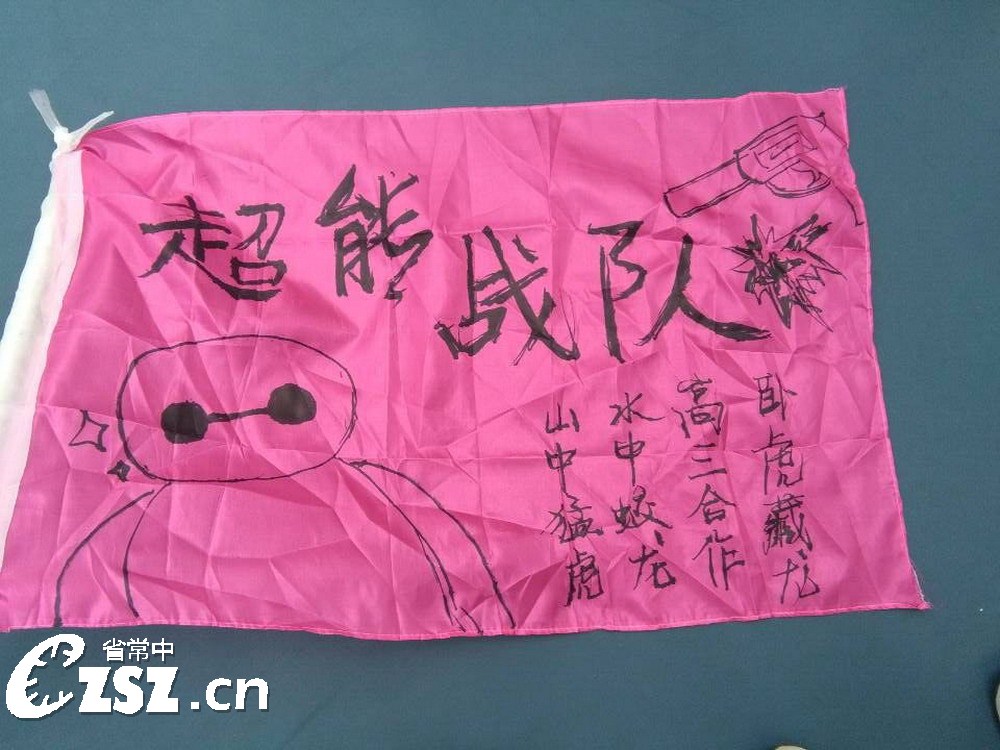 超能战队
山中猛虎
水中蛟龙
高三合作
卧虎藏龙
省常中
CZSZ.cn